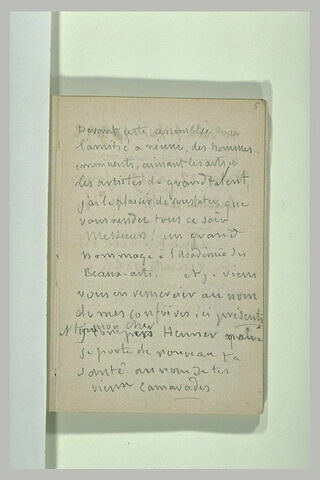 5
Devant cette assemblée, où
l'amitié a réuni, des hommes
eminents, aimant les arts, et
des artistes de grand talent,
j'ai le plaisir de constater, que
vous rendez tous ce soir
Messieurs! un grand
hommage à l'Académie des
Beaux-arts. Et je viens
vous en remercier au nom
de mes confrères, ici présents
mon cher
Henner
je porte de nouveau ta
santé au nom de tes
vieux camarades